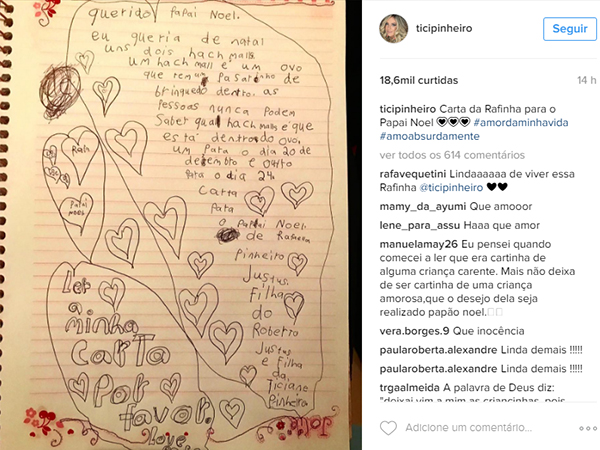 querido Papai Noel.
eu queria de natal
uns dois hachmalls
um hachmall e um ovo
que tem um Pasarinho de
brinquedo dentro. as
pessoas nunca podem
Saber qual hachmals é que
está dentrodo ovo,
um para o dia 20 de
desembro e outro
Para o dia 24.
carta
Para
o PaPai Noel.
de Rafaella
Pinheiro
Justus.
Filha
do
Roberto
Justus
e Filha
da.
Ticiane
Pinheira
Rafa
Papai
noel
ler
a
minha
carta
Por
favor.
Love
ticipinheiro
Seguir
18,6mil curtidas
14 h
ticipinheiro Carta da Rafinha para o
Papai Noel 🖤🖤🖤 #amordaminhavida
#amoabsurdamente
ver todos os 614 comentários
rafavequetini Lindaaaaaa de viver essa
Rafinha @ticipinheiro 🖤🖤
mamy_da_ayumi Que amooor
lene_para_assu Haaa que amor
manuelamay26 Eu pensei quando
comecei a ler que era cartinha de
alguma criança carente. Mais não deixa
de ser cartinha de uma criança
amorosa,que o desejo dela seja
realizado papão noel.
vera.borges.9 Que inocência
paularoberta.alexandre Linda demais !!!!!
paularoberta.alexandre Linda demais !!!!!
trgaalmeida A palavra de Deus diz:
"deixai vim a mim as criancinhas, pois
Adicione um comentário...